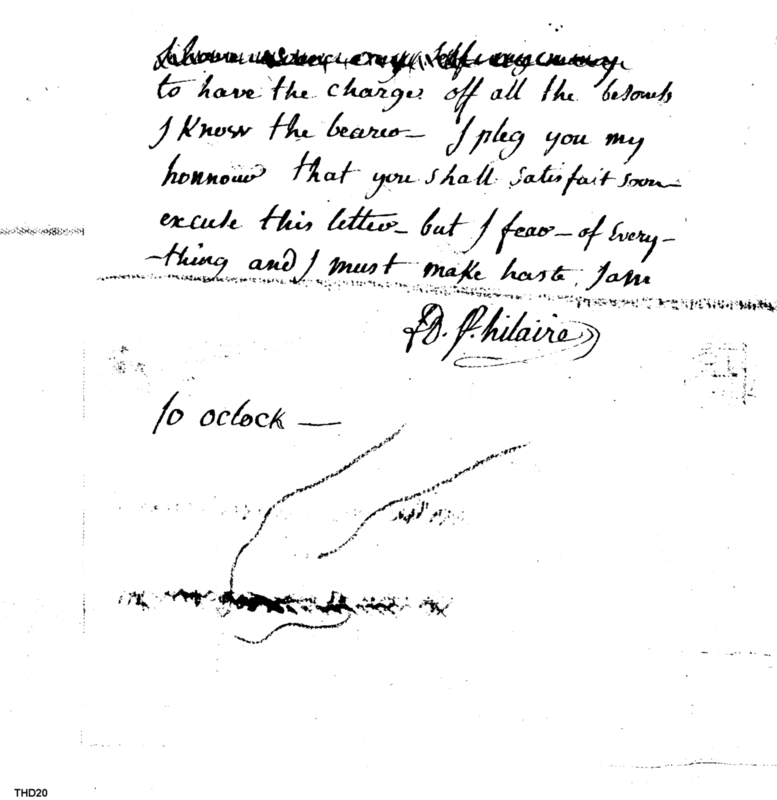 to have the charge off all the besouls
I Know the bearer – I pleg you my
honnour that you shall satisfait soon –
excuse this letter – but I fear – of Every –
– thing and I must make haste, I am
D. St. hilaire
10 oclock —
THD20